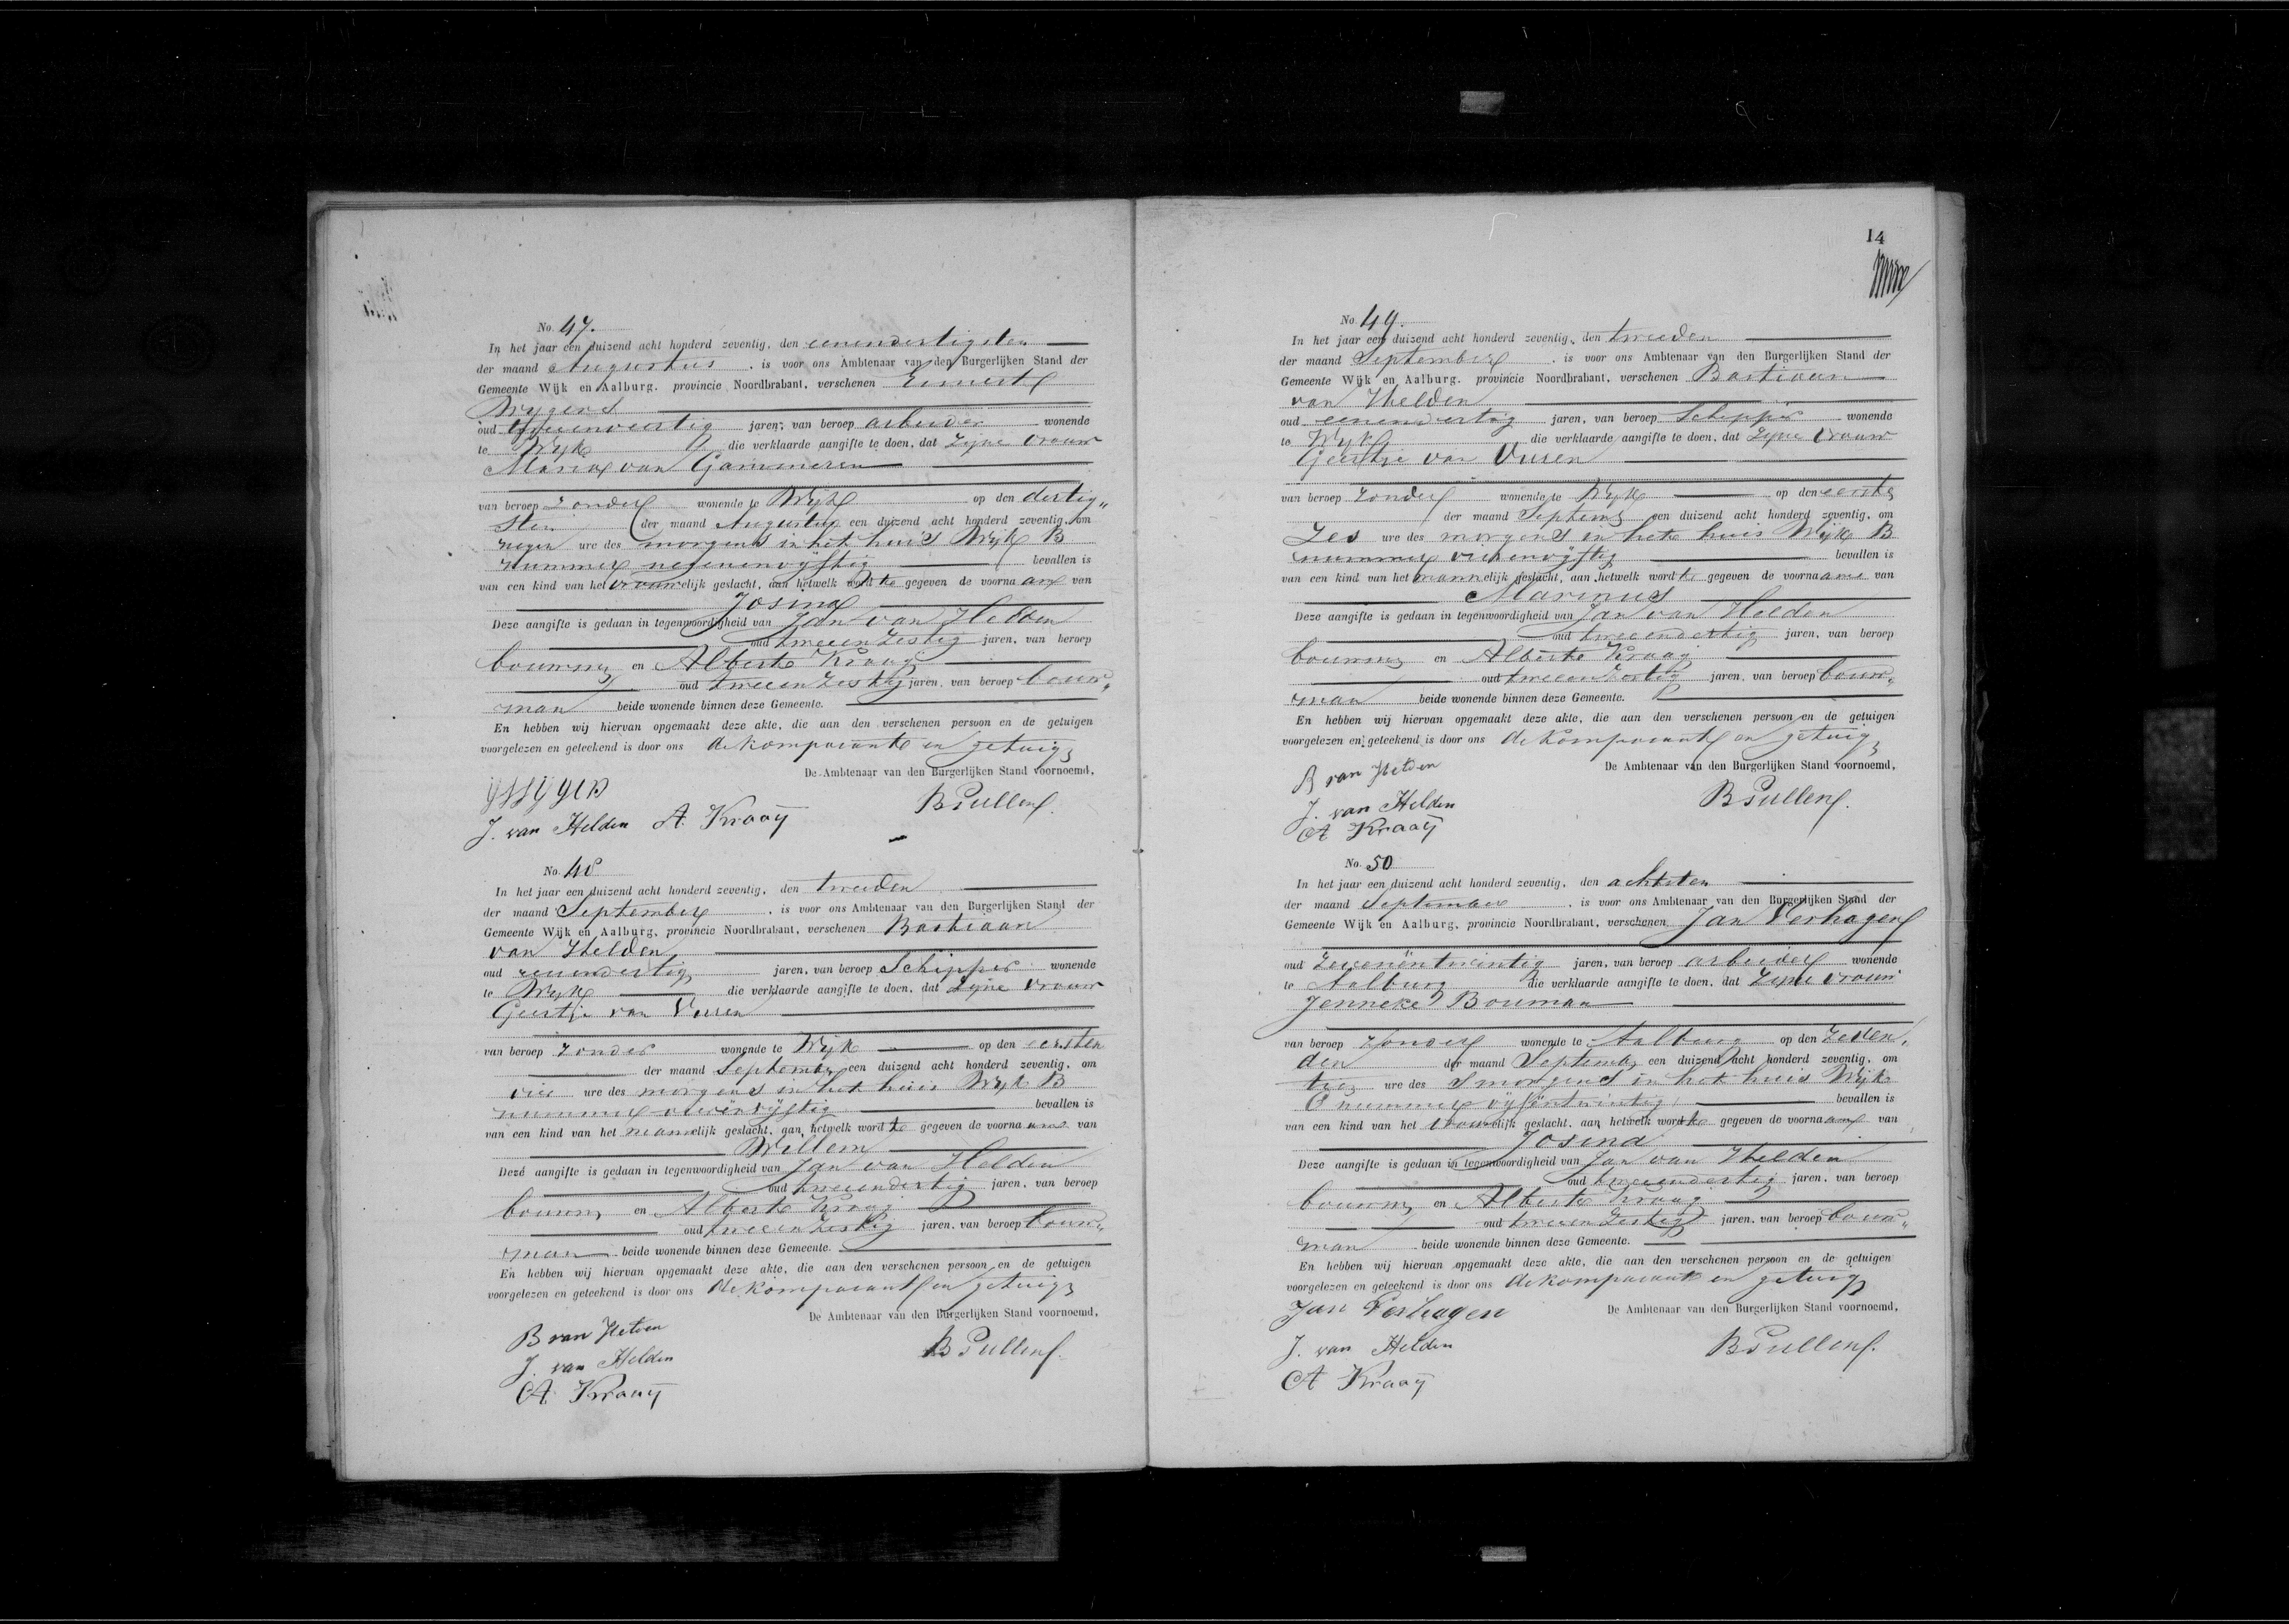 No. 47.
In het jaar een duizend acht honderd zeventig, den eenendertigsten
der maand Augustus, is voor ons Ambtenaar van den Burgerlijken Stand der
Gemeente Wijk en Aalburg, provincie Noordbrabant, verschenen
oud jaren, van beroep arbeider wonende
te Wijk die verklaarde aangifte te doen, dat zijne vrouw
Maria van Gammeren
van beroep zonder wonende te Wijk op den dertig„
sten der maand Augustus een duizend acht honderd zeventig, om
negen ure des morgens in het huis Wijk B
nummer negenenvijftig bevallen is
van een kind van het vrouwelijk geslacht, aan hetwelk wordt gegeven de voornaam van
Josina
Deze aangifte is gedaan in tegenwoordigheid van Jan van Helden
oud jaren, van beroep
bouwm en Albert Kraaij
oud tweeenzestig jaren, van beroep bouw„
man beide wonende binnen deze Gemeente.
En hebben wij hiervan opgemaakt deze akte, die aan den verschenen persoon en de getuigen
voorgelezen en geteekend is door ons de komparant en getuig
De Ambtenaar van den Burgerlijken Stand voornoemd,
B Pullen
J. van Helden A. Kraaij
No. 48
In het jaar een duizend acht honderd zeventig, den tweeden
der maand September, is voor ons Ambtenaar van den Burgerlijken Stand der
Gemeente Wijk en Aalburg, provincie Noordbrabant, verschenen Bastiaan
van Helden
oud eenendertig jaren, van beroep Schipper wonende
te Wijk die verklaarde aangifte te doen, dat zijne vrouw
Geertje van Vuren
van beroep zonder wonende te Wijk op den eersten
der maand Septemb een duizend acht honderd zeventig, om
vier ure des morgens in het huis Wijk B
nummer vierënvijftig bevallen is
van een kind van het mannelijk geslacht, aan hetwelk wordt gegeven de voornaame van
Willem
Deze aangifte is gedaan in tegenwoordigheid van Jan van Helden
oud tweeendertig jaren, van beroep
bouwm en Albert Kraaij
oud tweeenzestig jaren, van beroep bouw„
man beide wonende binnen deze Gemeente.
En hebben wij hiervan opgemaakt deze akte, die aan den verschenen persoon en de getuigen
voorgelezen en geteekend is door ons de komparant en getuig
De Ambtenaar van den Burgerlijken Stand voornoemd,
B van Helden
J. van Helden
B Pullen
A Kraaij
14
No. 49.
In het jaar een duizend acht honderd zeventig, den tweeden
der maand September, is voor ons Ambtenaar van den Burgerlijken Stand der
Gemeente Wijk en Aalburg, provincie Noordbrabant, verschenen Bastiaan
van Helden
oud eenendertig jaren, van beroep Schipper wonende
te Wijk die verklaarde aangifte te doen, dat zijne vrouw
Geertje van Vuren
van beroep zonder wonende te Wijk op den eerste
der maand Septemb een duizend acht honderd zeventig, om
Zes ure des morgens in het huis Wijk B
nummer vierenvijftig bevallen is
van een kind van het mannelijk geslacht, aan hetwelk wordt gegeven de voornaame van
Marinus
Deze aangifte is gedaan in tegenwoordigheid van Jan van Helden
oud tweeendertig jaren, van beroep
bouwm en Albert Kraaij
oud tweeenzestig jaren, van beroep bouw„
man beide wonende binnen deze Gemeente.
En hebben wij hiervan opgemaakt deze akte, die aan den verschenen persoon en de getuigen
voorgelezen en geteekend is door ons de komparant en getuig
De Ambtenaar van den Burgerlijken Stand voornoemd,
B van Helden
J. van Helden
B Pullen
A Kraaij
No. 50
In het jaar een duizend acht honderd zeventig, den achtsten
der maand September, is voor ons Ambtenaar van den Burgerlijken Stand der
Gemeente Wijk en Aalburg, provincie Noordbrabant, verschenen Jan Verhagen
oud zevenëntwintig jaren, van beroep arbeider wonende
te Aalburg die verklaarde aangifte te doen, dat zijne vrouw
Jenneke Bouman
van beroep zonder wonende te Aalburg op den zeven„
den der maand Septemb een duizend acht honderd zeventig, om
ure des Smorgens in het huis Wijk
nummer vijfëntwintig bevallen is
van een kind van het vrouwelijk geslacht, aan hetwelk wordt gegeven de voornaam van
Josina
Deze aangifte is gedaan in tegenwoordigheid van Jan van Helden
oud tweeendertig jaren, van beroep
bouwm en Albert Kraaij
oud tweeenzestig jaren, van beroep bouw„
man beide wonende binnen deze Gemeente.
En hebben wij hiervan opgemaakt deze akte, die aan den verschenen persoon en de getuigen
voorgelezen en geteekend is door ons de komparant en getuig
De Ambtenaar van den Burgerlijken Stand voornoemd,
Jan Verhagen
J. van Helden
B Pullen
A Kraaij